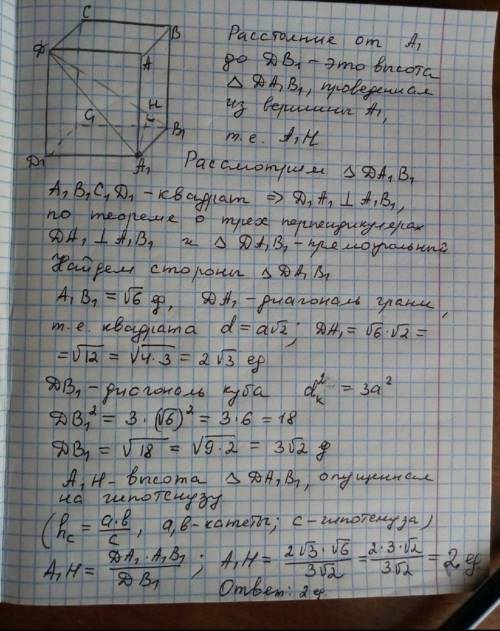 C
B
D
A
H
C₁
B₁
D₁
A₁
Расстояние от A₁
до DB₁ - это высота
△ DA₁B₁, проведенная
из вершины A₁,
т.е. A₁H
Рассмотрим △ DA₁B₁
A₁B₁C₁D₁ - квадрат ⇒ D₁A₁ ⊥ A₁B₁,
по теореме о трех перпендикулярах
DA₁ ⊥ A₁B₁ и △ DA₁B₁ - прямоугольный
Найдем стороны △ DA₁B₁
A₁B₁ = √6 ед, DA₁ - диагональ грани,
т.е. квадрата d = a√2; DA₁ = √6 · √2 =
= √12 = √4·3 = 2√3 ед
DB₁ - диагональ куба dₖ² = 3a²
DB₁² = 3 · (√6)² = 3·6 = 18
DB₁ = √18 = √9·2 = 3√2 ед
A₁H - высота △ DA₁B₁, опущенная
на гипотенузу
(h_c = a·b/c, a, b - катеты; c - гипотенуза)
A₁H = DA₁·A₁B₁/DB₁; A₁H = 2√3·√6/3√2 = 2·3·√2/3√2 = 2 ед
Ответ: 2 ед.